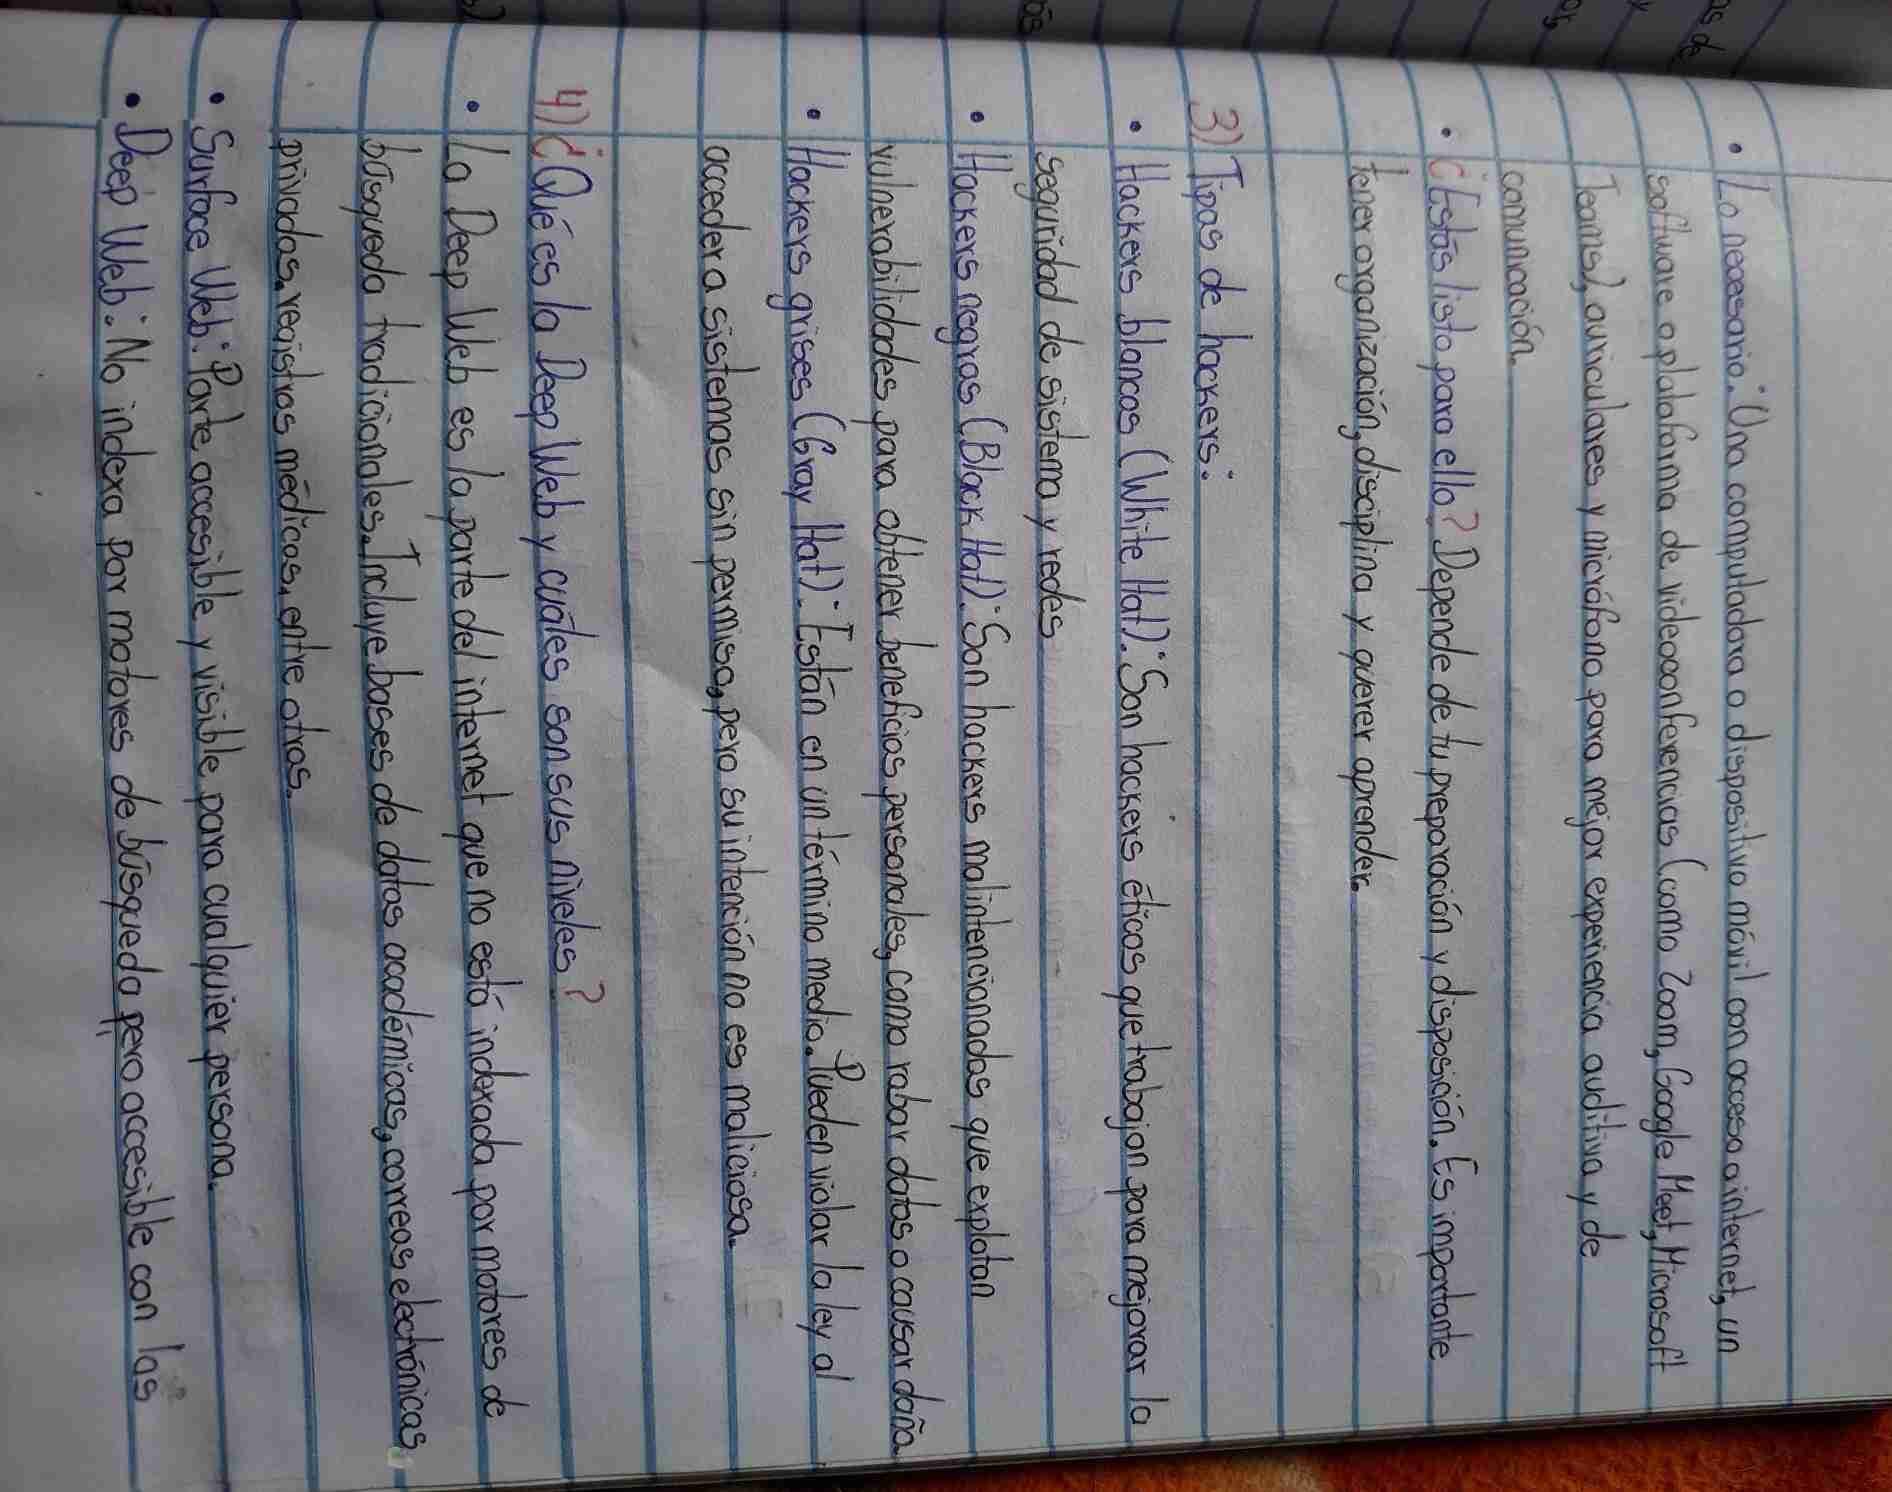 • Lo necesario: Una computadora o dispositivo móvil con acceso a internet, un
software o plataforma de videoconferencias (como Zoom, Google Meet, Microsoft
Teams), auriculares y micrófono para mejor experiencia auditiva y de
comunicación.
• ¿Estás listo para ello? Depende de tu preparación y disposición. Es importante
tener organización, disciplina y querer aprender.
3) Tipos de hackers:
• Hackers blancos (White Hat): Son hackers éticos que trabajan para mejorar la
seguridad de sistema y redes
• Hackers negros (Black Hat): Son hackers malintencionados que explotan
vulnerabilidades para obtener beneficios personales, como robar datos o causar daño.
• Hackers grises (Gray Hat): Están en un término medio. Pueden violar la ley al
acceder a sistemas sin permiso, pero su intención no es maliciosa.
4) ¿Qué es la Deep Web y cuáles son sus niveles?
• La Deep Web es la parte del internet que no está indexada por motores de
búsqueda tradicionales. Incluye bases de datos académicas, correos electrónicas
privados, registros médicos, entre otros.
• Surface Web: Parte accesible y visible para cualquier persona.
• Deep Web: No indexa por motores de búsqueda pero accesible con las